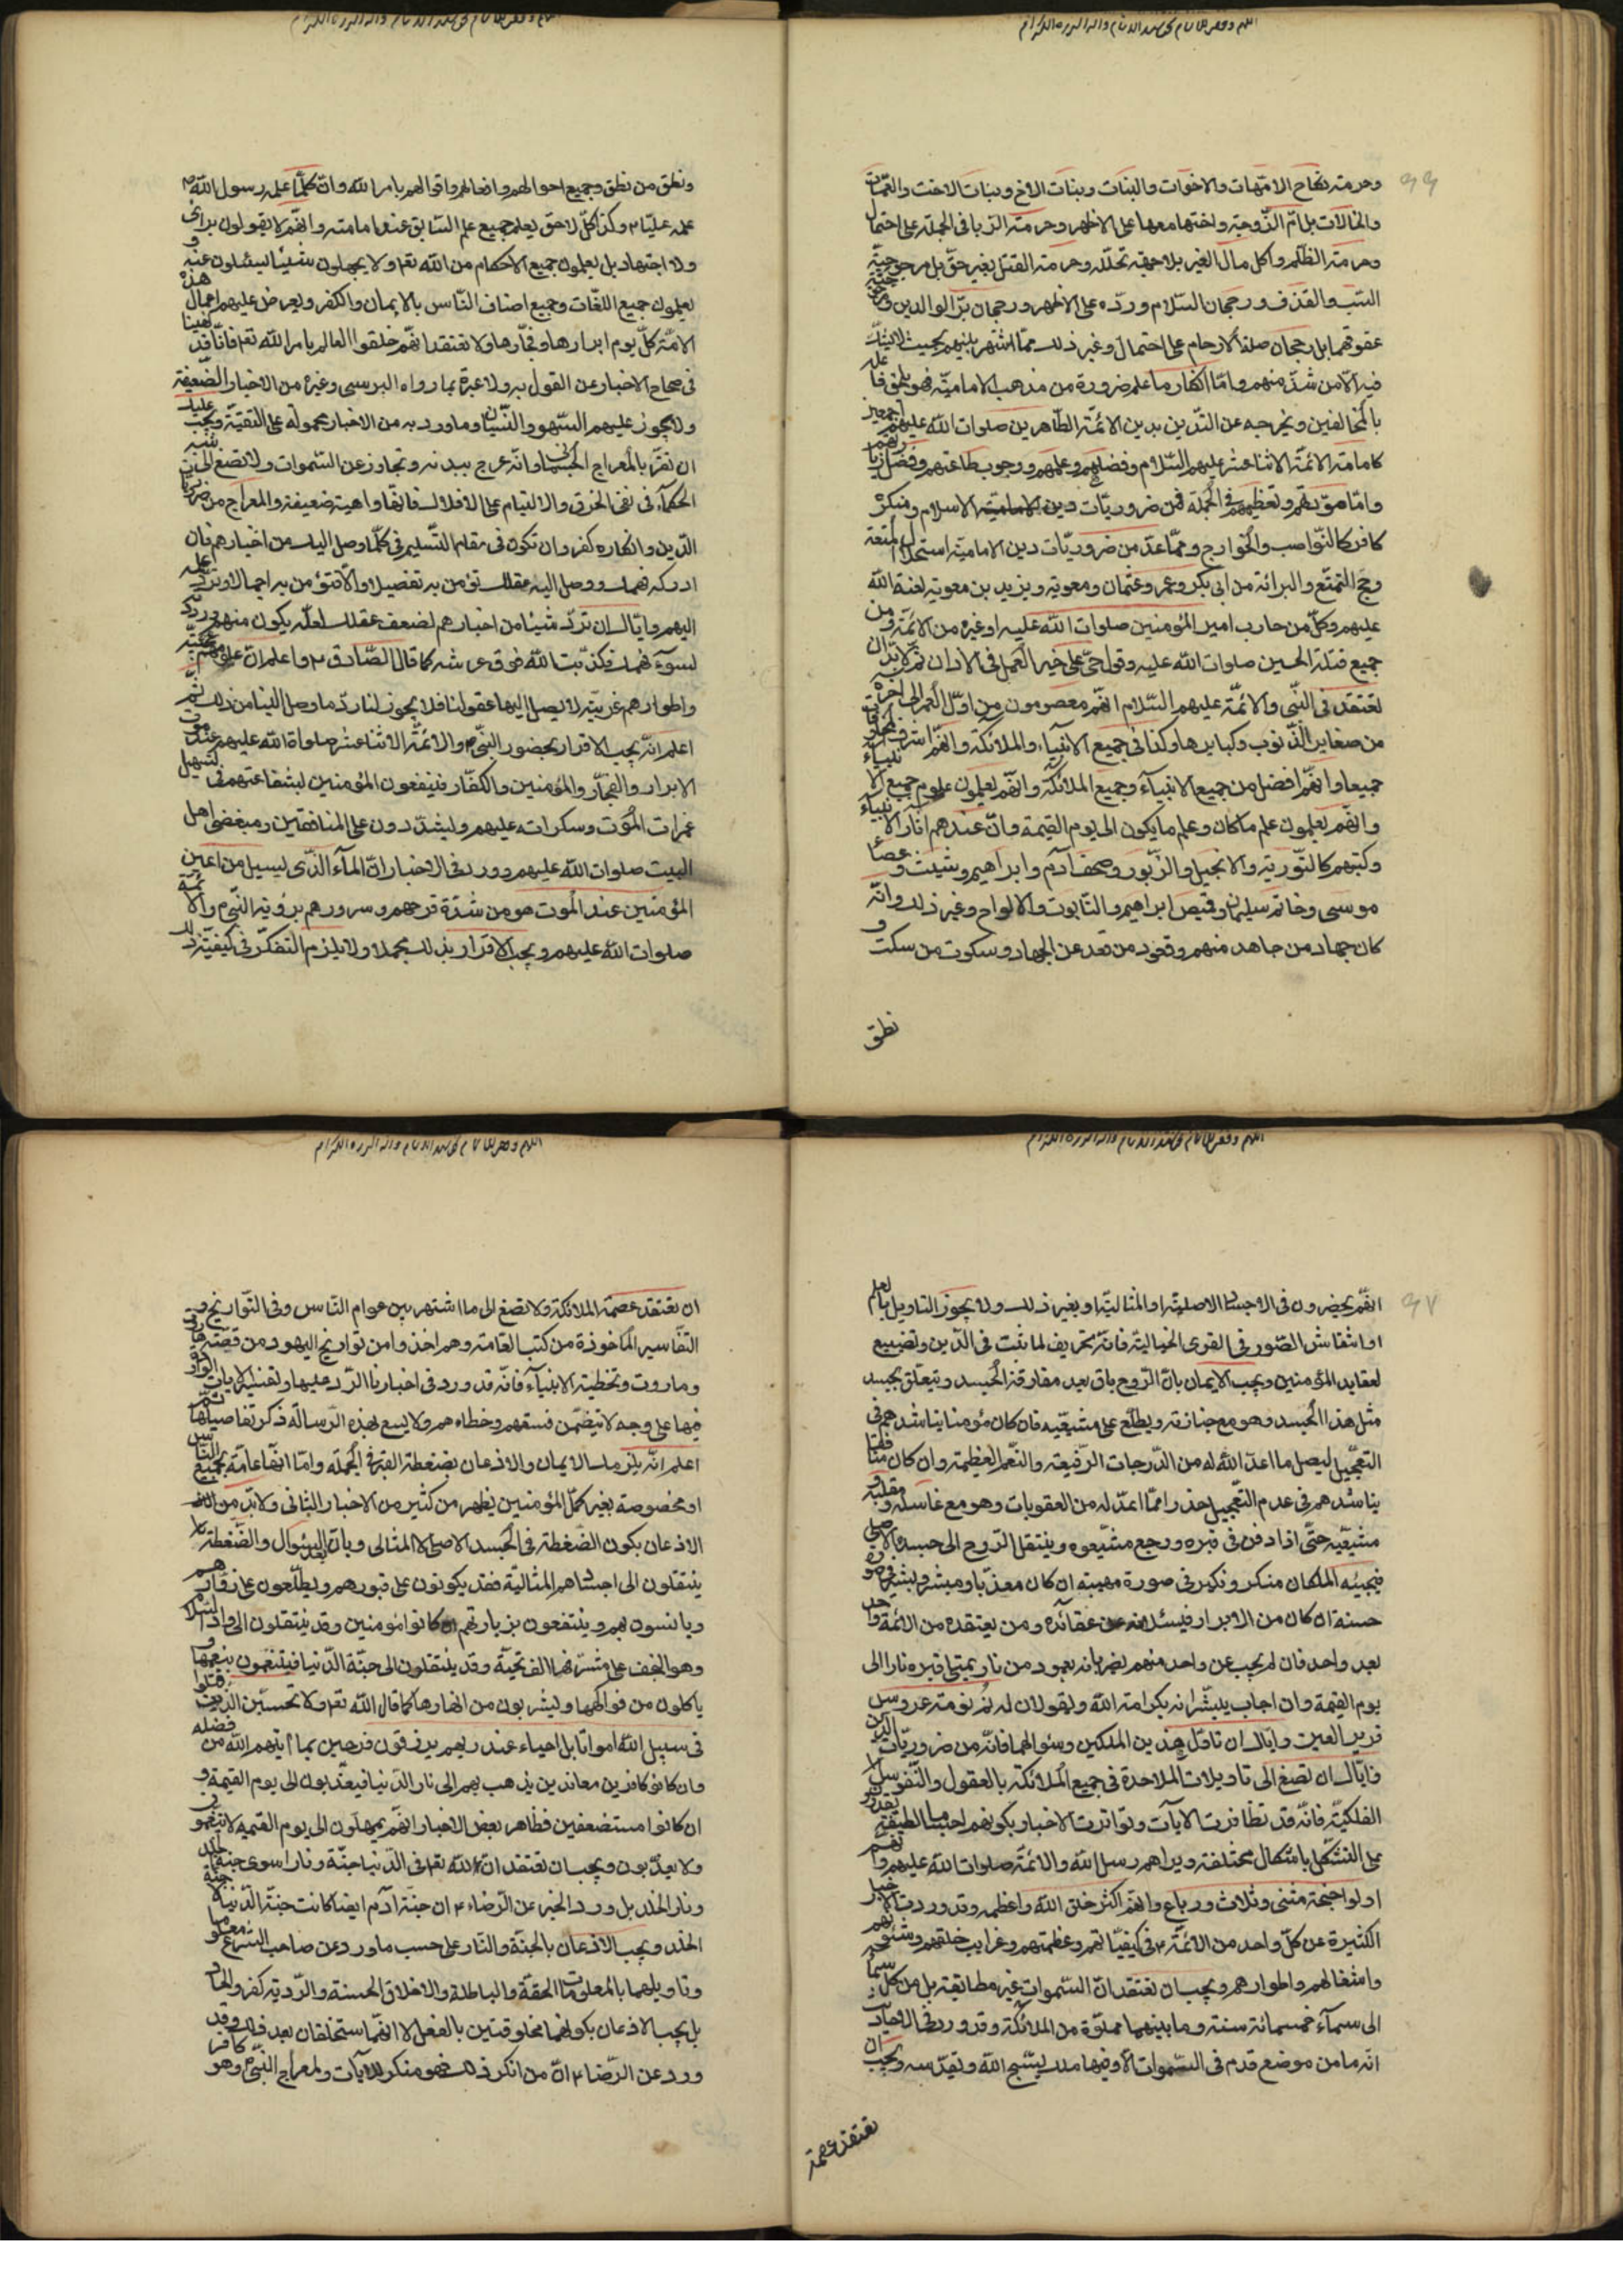 وحرمته نكاح الامّهات والاخوات والبنات وبنات الاخ وبنات الاخت والعمّات
والخالات بل امّ الزّوجة واختها معها على الاظهر وحرمته الزنا فى الجملة على احتمال
وحرمته الظّلم واكل مال الغير بلا جهة تحلّله وحرمته القتل بغير حقّ بل مرجوحيّة
السّب والقذف ورجحان السّلام وردّه على الاظهر ورجحان برّ الوالدين
عقوقهما بل رجحان صلة الارحام على احتمال وغير ذلك ممّا اشتهر بينهم بحيث لا يشكّ
فيه الّا من شذّ منهم وامّا انكار ما علم ضرورة من مذهب الاماميّة فهو يلحق فاعله
بالمخالفين ويخرجه عن التّديّن بدين الائمّة الطّاهرين صلوات الله عليهم اجمعين
كامامته الائمّة الاثنا عشر عليهم السّلام وفضلهم وعلمهم ووجوب طاعتهم وفضل زيارتهم
وامّا مودّتهم وتعظيمهم فى الجملة فمن ضروريّات دين الاسلام ومنكره
كافر كالنّواصب والخوارج وممّا عدّ من ضروريّات دين الاماميّة استحلال المتعة
وحجّ التمتّع والبرائة من ابى بكر وعمر وعثمان ومعوية ويزيد بن معوية لعنة الله
عليهم وكلّ من حارب امير المؤمنين صلوات الله عليه او غيره من الائمّة ومن
جميع قتلة الحسين صلوات الله عليه وقول حىّ على خير العمل فى الاذان ثمّ لا بدّ ان
تعتقد فى النّبى والائمّة عليهم السّلام انّهم معصومون من اوّل العمر الى اخره
من صغاير الذّنوب وكبايرها وكذا فى جميع الانبياء والملائكة وانّهم اشرف المخلوقات
جميعا وانّهم افضل من جميع الانبيآء وجميع الملائكة وانّهم يعلمون علوم جميع الانبياء
وانّهم يعلمون علم ما كان وعلم ما يكون الى يوم القيمة وانّ عندهم اثار الانبياء
وكتبهم كالتّورية والانجيل والزّبور وصحف آدم وابراهيم وشيث وعصا
موسى وخاتم سليمان وقميص ابراهيم والتّابوت والالواح وغير ذلك وانّه
كان جهاد من جاهد منهم وقعود من قعد عن الجهاد وسكوت من سكت و
نطق
ونطق من نطق وجميع احوالهم وافعالهم واقوالهم بامر الله وانّ كلّما علمه رسول الله ص
علمه عليّا ع وكذا كلّ لاحق يعلم جميع علم السّابق عند امامته وانّهم لا يقولون براى
ولا اجتهاد بل يعلمون جميع الاحكام من الله تعالى ولا يجهلون شيئا يسئلون عنه و
يعلمون جميع اللّغات وجميع اصناف النّاس بالايمان والكفر ويعرض عليهم اعمال هذه
الامّة كلّ يوم ابرارها وفجّارها ولا تعتقد انّهم خلقوا العالم بامر الله تعالى فانّا قد نهينا
فى صحاح الاخبار عن القول به ولا عبرة بما رواه البرسى وغيره من الاخبار الضّعيفة
ولا يجوز عليهم السّهو والنّسيان وما ورد به من الاخبار محمولة على التقيّة ويجب عليك
ان تقرّ بالمعراج الجسمانى وانّه عرج ببدنه وتجاوز عن السّموات ولا تصغ الى شبه
الحكمآء فى نفى الخرق والالتيام على الافلاك فانّها واهية ضعيفة والمعراج من ضروريّات
الدّين وانكاره كفر وان تكون فى مقام التّسليم فى كلّما وصل اليك من اخبارهم فان
ادركه فهمك ووصل اليه عقلك تؤمن به تفصيلا والّا فتؤمن به اجمالا وتردّ علمه
اليهم وايّاك ان تردّ شيئا من اخبارهم لضعف عقلك لعلّه يكون منهم ورددته
لسوء فهمك فكذّبت الله فوق عرشه كما قال الصّادق ع واعلم انّ علومهم عجيبة
واطوارهم غريبة لا يصل اليها عقولنا فلا يجوز لنا ردّ ما وصل الينا من ذلك ثمّ
اعلم انّه يجب الاقرار بحضور النّبى ص والائمّة الاثنا عشر صلواة الله عليهم عند موت
الابرار والفجّار والمؤمنين والكفّار فينفعون المؤمنين بشفاعتهم فى تسهيل
غمرات الموت وسكراته عليهم ويشدّدون على المنافقين ومبغضى اهل
البيت صلوات الله عليهم وورد فى الاخبار انّ المآء الّذى يسيل من اعين
المؤمنين عند الموت هو من شدّة فرحهم وسرورهم برؤية النّبى ص والائمّة
صلوات الله عليهم ويجب الاقرار بذلك مجملا ولا يلزم التفكّر فى كيفيّة ذلك
انّهم يحضرون فى الاجساد الاصليّة او المثاليّة او بغير ذلك ولا يجوز التاويل بالعلم
او انتقاش الصّور فى القوى الخياليّة فانّه تحريف لما ثبت فى الدّين وتضييع
لعقايد المؤمنين ويجب الايمان بانّ الرّوح باق بعد مفارقة الجسد ويتعلّق بجسد
مثل هذا الجسد وهو مع جنازته ويطّلع على مشيّعيه فان كان مؤمنا يناشدهم فى
التعجيل ليصل ما اعدّ الله له من الدّرجات الرّفيعة والنّعم العظيمة وان كان منافقا
يناشدهم فى عدم التّعجيل حذرا ممّا اعدّ له من العقوبات وهو مع غاسله ومقلّبه و
مشيّعيه حتّى اذا دفن فى قبره ورجع مشيّعوه وينتقل الرّوح الى جسده الاصلى
فيجيئه الملكان منكر ونكير فى صورة مهيبة ان كان معذّبا ومبشّر وبشير فى صورة
حسنة ان كان من الابرار فيسئلانه عن عقائده ومن يعتقده من الائمّة واحد
بعد واحد فان لم يجب عن واحد منهم يضربانه بعمود من نار يمتلى قبره نارا الى
يوم القيمة وان اجاب يبشّرانه بكرامة الله ويقولان له نم نومة عروس
قرير العين وايّاك ان تاوّل هذين الملكين وسئوالهما فانّه من ضروريّات الدّين
وايّاك ان تصغ الى تاويلات الملاحدة فى جميع الملائكة بالعقول والنّفوس
الفلكيّة فانّه قد تظافرت الآيات وتواترت الاخبار بكونهم اجساما لطيفة يقدرون
على التشكّل باشكال مختلفة ويراهم رسل الله والائمّة صلوات الله عليهم وانّهم
اولوا اجنحة مثنى وثلاث ورباع وانّهم اكثر خلق الله واعظمه وقد وردت الاخبار
الكثيرة عن كلّ واحد من الائمّة ع فى كيفيّاتهم وعظمتهم وغرايب خلقهم وشئونهم
واشغالهم واطوارهم ويجب ان تعتقد انّ السّموات غير مطابقة بل من كلّ سمآء
الى سمآء خمسمائة سنة وما بينهما مملوّة من الملائكة وقد ورد فى الاحاديث
انّه ما من موضع قدم فى السّموات الّا وفيها ملك يسبّح الله ويقدّسه ويجب ان
تعتقد عصمة
ان تعتقد عصمة الملائكة ولا تصغ الى ما اشتهر بين عوام النّاس وفى التّواريخ و
التّفاسير المأخوذة من كتب العامّة وهم اخذوا من تواريخ اليهود من قصّة هاروت
وماروت وتخطئة الانبيآء فانّه قد ورد فى اخبارنا الرّد عليها وتفسير الايات الواردة
فيها على وجه لا يتضمّن فسقهم وخطاءهم ولا يسع هذه الرّسالة ذكر تفاصيلها ثمّ
اعلم انّه يلزمك الايمان والاذعان بضغطة القبر فى الجملة وامّا انّها عامّة لجميع النّاس
او مخصوصة بغير كمّل المؤمنين يظهر من كثير من الاخبار الثّانى ولا بدّ من
الاذعان بكون الضّغطة فى الجسد الاصلى لا المثالى وبانّ بعد السّئوال والضّغطة
ينتقلون الى اجسادهم المثالية فقد يكونون على قبورهم ويطّلعون على زوّارهم
ويانسون بهم وينتفعون بزيارتهم ان كانوا مؤمنين وقد ينتقلون الى وادى السّلام
وهو النّجف على مشرّفها الف تحيّة وقد ينتقلون الى جنّة الدّنيا فيتنعّمون بنعيمها و
ياكلون من فواكهها ويشربون من انهارها كما قال الله تعالى ولا تحسبنّ الّذين قتلوا
فى سبيل الله امواتا بل احياء عند ربهم يرزقون فرحين بما اتيهم الله من فضله
وان كانو كافرين معاندين يذهب بهم الى نار الدّنيا فيعذّبون الى يوم القيمة و
ان كانوا مستضعفين فظاهر بعض الاخبار انّهم يمهلون الى يوم القيمة لا يتنعّمون
ولا يعذّبون ويجب ان تعتقد انّ لله تعالى فى الدّنيا جنّة ونارا سوى جنّة الخلد
ونار الخلد بل ورد الخبر عن الرّضاء ع ان جنّة آدم ايضا كانت جنّة الدّنيا لا جنّة
الخلد ويجب الاذعان بالجنّة والنّار على حسب ما ورد عن صاحب الشّرع
وتاويلهما بالمعلومات الحقّة والباطلة والاخلاق الحسنة والرّدية كفر والحاد
بل يجب الاذعان بكونهما مخلوقتين بالفعل لا انّهما ستخلقان بعد ذلك وقد
ورد عن الرّضا ع انّ من انكر ذلك فهو منكر للآيات ولمعراج النّبى ص وهو كافر